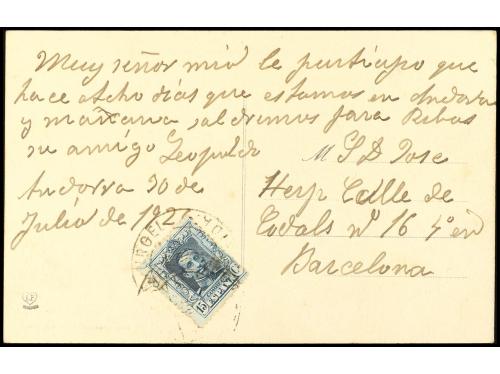 Muy señor mio le partiapo que
hace otcho dias que estamos en Andorra
y mañana saldremos para Ribas
su amigo Leopoldo
Andorra 30 de
Julio de 192
M S D Jose
Herp Calle de
Codals nº 16 4º en
Barcelona
URGEL
15